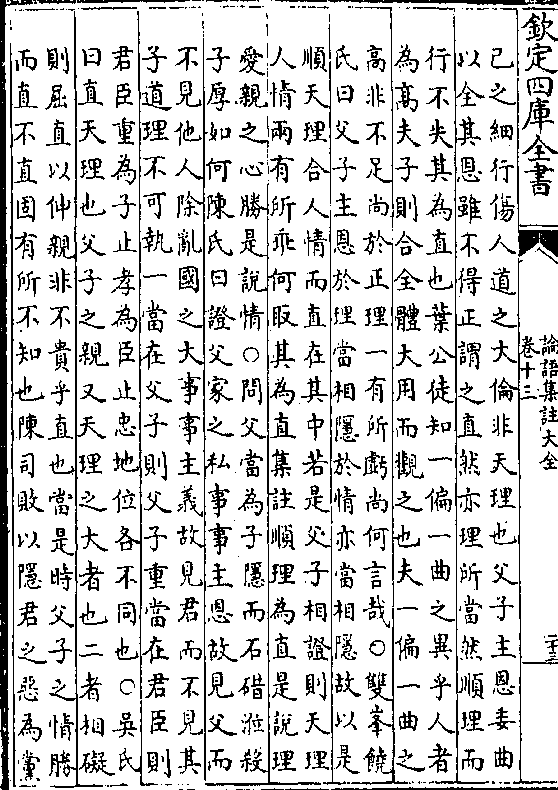 欽定四庫全書
論語集註大全
卷十三
二十三
己之細行傷人道之大倫非天理也父子主恩委曲
以全其恩雖不得正謂之直然亦理所當然順理而
行不失其為直也葉公徒知一偏一曲之異乎人者
為髙夫子則合全體大用而觀之也夫一偏一曲之
高非不足尚於正理一有所虧尚何言哉○雙峯饒
氏曰父子主恩於理當相隱於情亦當相隱故以是
順天理合人情而直在其中若是父子相證則天理
人情兩有所乖何取其為直集註順理為直是說理
愛親之心勝是說情○問父當為子隱而石碏涖殺
子厚如何陳氏曰證父家之私事事主恩故見父而
不見他人除亂國之大事事主義故見君而不見其
子道理不可執一當在父子則父子重當在君臣則
君臣重為子止孝為臣止忠地位各不同也○吳氏
曰直天理也父子之親又天理之大者也二者相礙
則屈直以伸親非不貴乎直也當是時父子之情勝
而直不直固有所不知也陳司敗以隱君之惡為黨